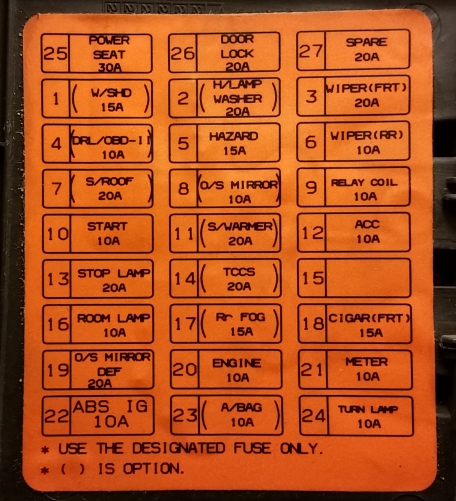 25 POWER SEAT 30A
26 DOOR LOCK 20A
27 SPARE 20A
1 (W/SHD 15A)
2 (H/LAMP WASHER 20A)
3 WIPER(FRT) 20A
4 (DRL/OBD-II 10A)
5 HAZARD 15A
6 WIPER(RR) 10A
7 (S/ROOF 20A)
8 (O/S MIRROR 10A)
9 RELAY COIL 10A
10 START 10A
11 (S/WARMER 20A)
12 ACC 10A
13 STOP LAMP 20A
14 (TCCS 20A)
15
16 ROOM LAMP 10A
17 (Rr FOG 15A)
18 CIGAR(FRT) 15A
19 O/S MIRROR DEF 20A
20 ENGINE 10A
21 METER 10A
22 ABS IG 10A
23 (A/BAG 10A)
24 TURN LAMP 10A
* USE THE DESIGNATED FUSE ONLY.
* ( ) IS OPTION.